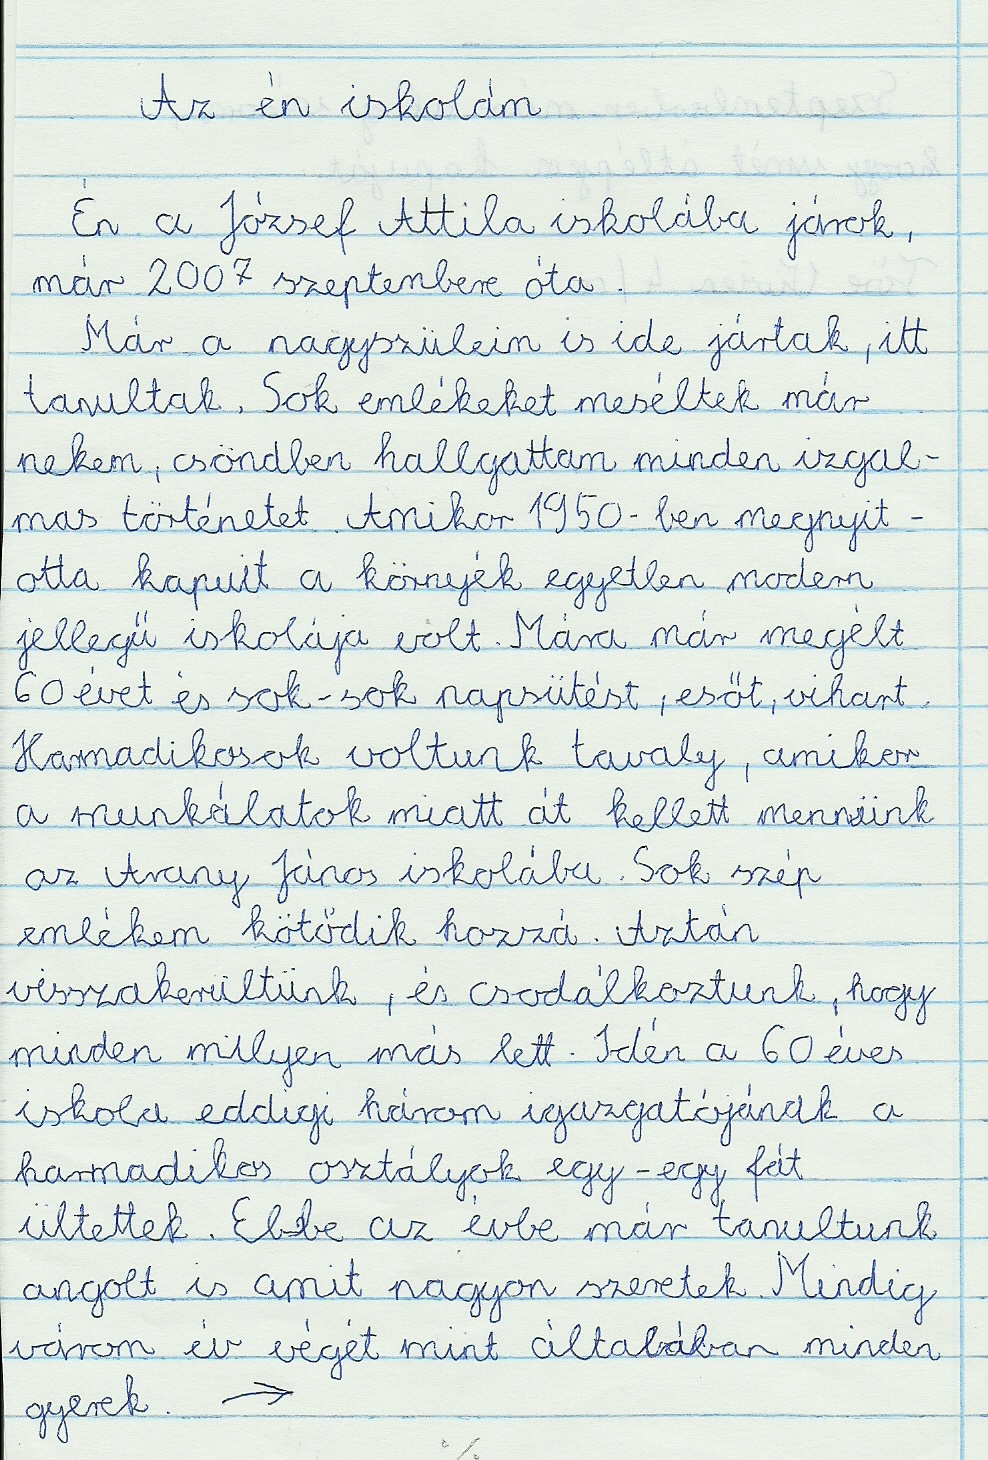 Az én iskolám
Én a József Attila iskolába járok,
már 2007 szeptembere óta.
Már a nagyszüleim is ide jártak, itt
tanultak. Sok emlékeket meséltek már
nekem, csöndben hallgattam minden izgal-
mas történetet. Amikor 1950-ben megnyit-
otta kapuit a környék egyetlen modern
jellegű iskolája volt. Mára már megélt
60 évet és sok-sok napsütést, esőt, vihart.
Harmadikosok voltunk tavaly, amikor
a munkálatok miatt át kellett mennünk
az Arany János iskolába. Sok szép
emlékem kötődik hozzá. Aztán
visszakerültünk, és csodálkoztunk, hogy
minden milyen más lett. Idén a 60 éves
iskola eddigi három igazgatójának a
harmadikos osztályok egy-egy fát
ültettek. Ebbe az évbe már tanultunk
angolt is amit nagyon szeretek. Mindig
várom év végét mint általában minden
gyerek. →